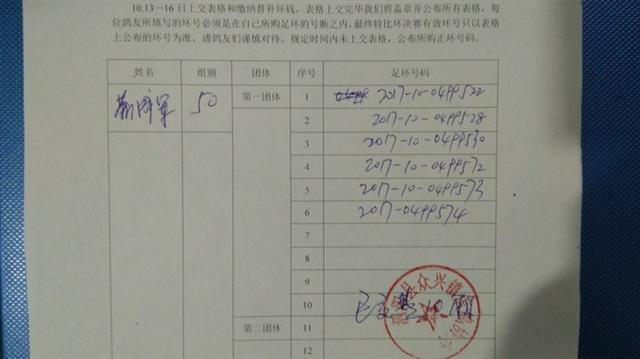 10.13—16日上交表格和缴纳替补环钱。表格上交完毕我们将盖章并公布所有表格，每
位鸽友所填写的环号必须是在自己所购足环的号断之内，最终特比环决赛有效环号只以表格
上公布的环号为准，请鸽友们谨慎对待。规定时间内未上交表格，公布所购正环号码。
姓名 组别 团体 序号 足环号码
50 第一团体 1 2017-10-0499522
2 2017-10-0499528
3 2017-10-0499530
4 2017-10-0499572
5 2017-10-0499573
6 2017-0499574
7
8
9
10 已交
县众兴镇
第二团体 11
12